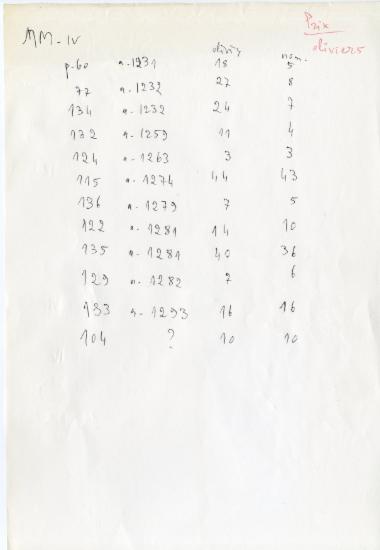 MM-IV
Prix
oliviers
oliv. nom.
p. 60 a. 1231 18 5
77 a. 1232 27 8
134 a. 1232 24 7
132 a. 1259 11 4
124 a. 1263 3 3
115 a. 1274 44 43
136 a. 1279 7 5
122 a. 1281 14 10
135 a. 1281 40 36
129 a. 1282 7 6
133 a. 1293 16 16
104 ? 10 10